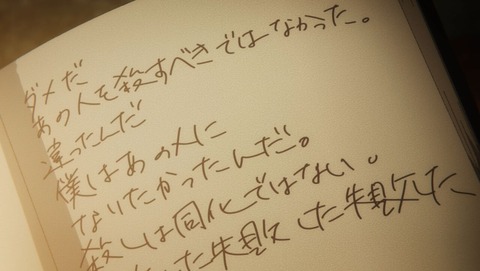 ダメだ
あの人を殺すべきではなかった。
違ったんだ
僕はあの人に
なりたかったんだ。
殺しは同化ではない。
した失敗した失敗した